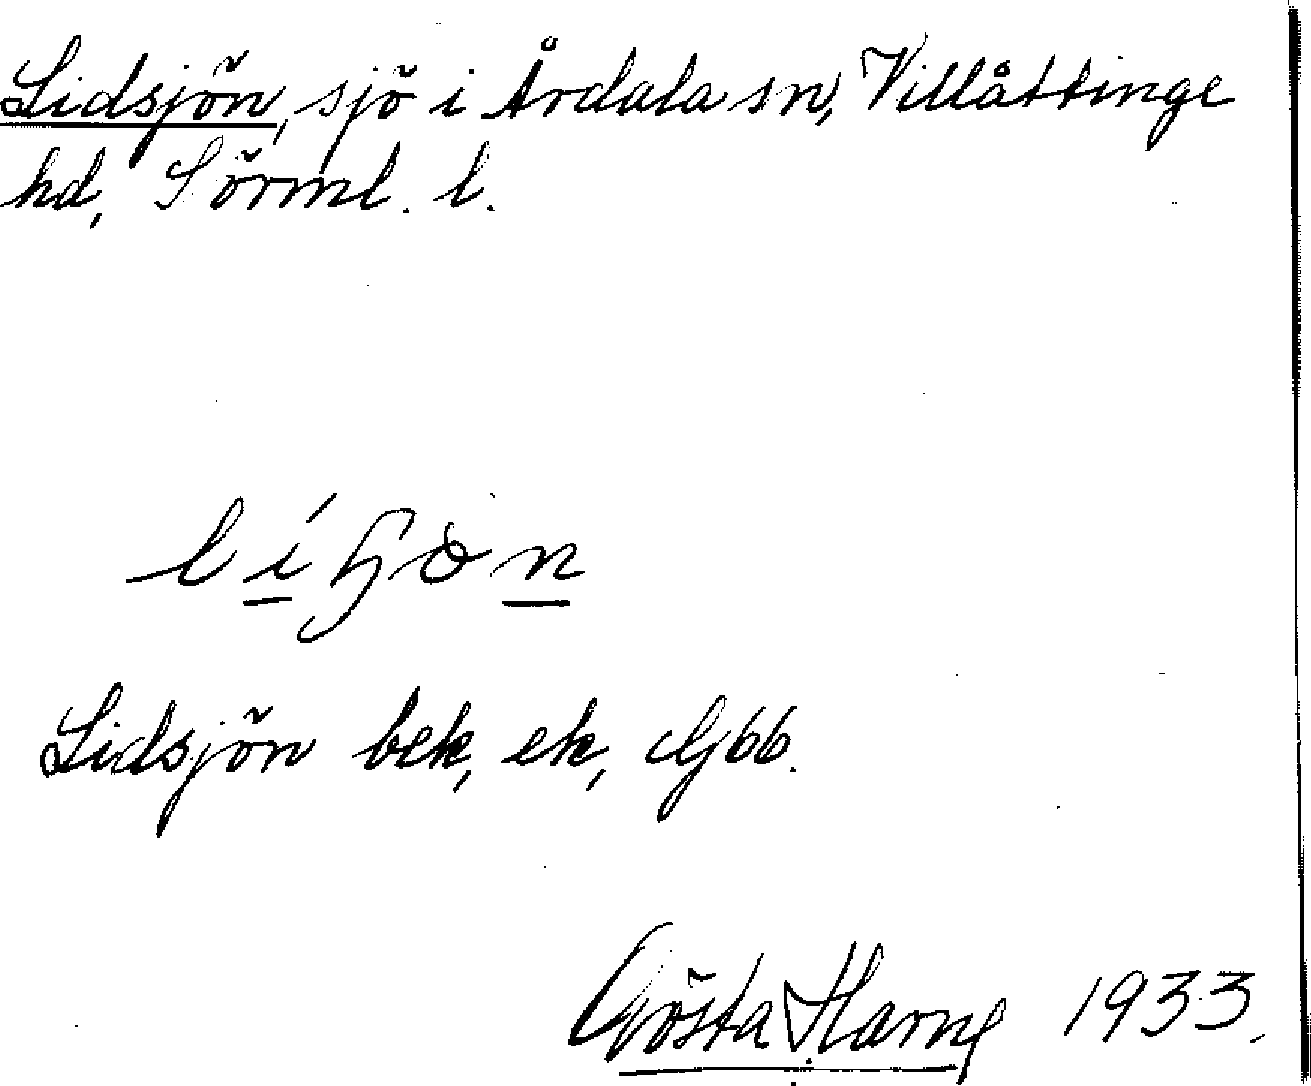 Lidsjön, sjö i Årdala sn, Villåttinge
hd, Sörml. l.
Lidsjön bek, ek, Gj66.
Gösta 1933.